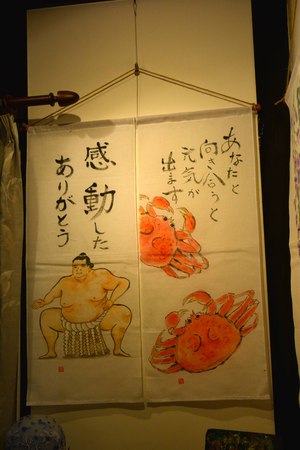 あなたと
向き合うと
元気が
出ます
感動した
ありがとう